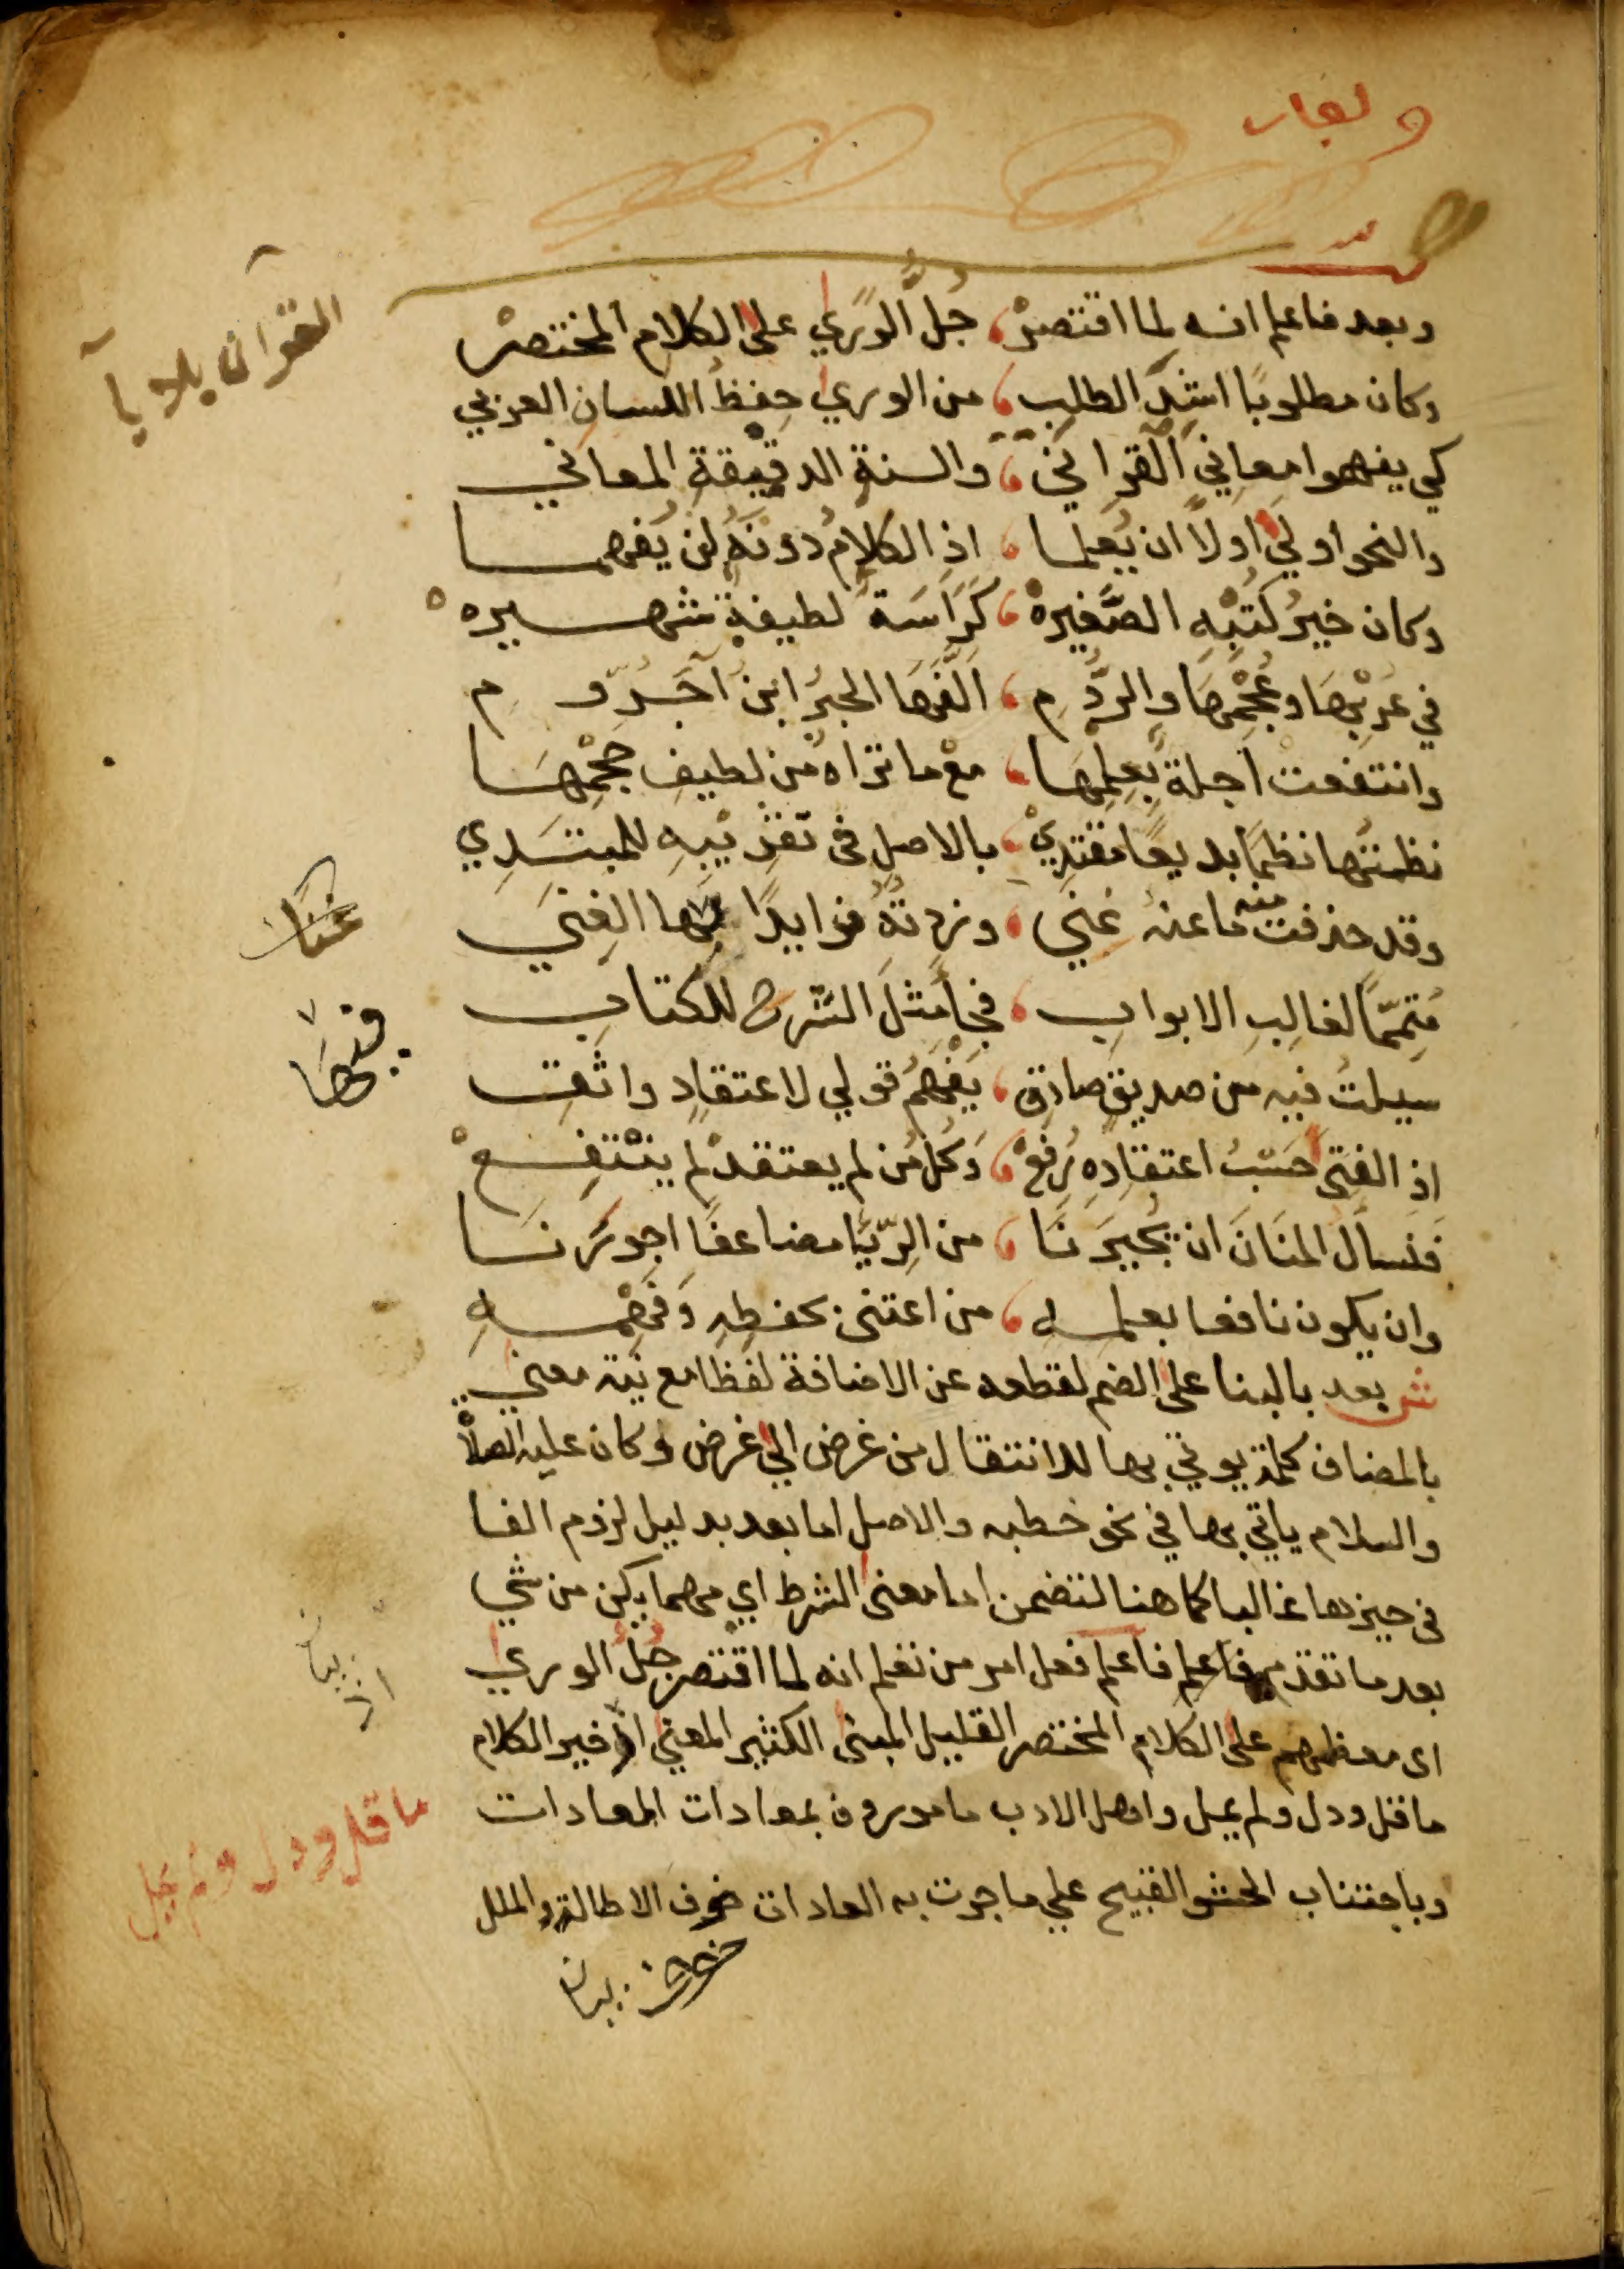 وبعد فاعلم انه لما اقتصرْ، جُلُّ الوَرَي على الكلام المختصرْ
وكان مطلوبًا اشدَّ الطلبِ، من الوري حِفظُ اللسان العربي
كي يفهموا معانيَ القرانِ، والسنةِ الدقيقةِ المعاني
والنحو اوليَ اولاً ان يُعلما، اذِ الكلامُ دونَهُ لن يُفهمـا
وكان خيرُ كتْبهِ الصَّغيرهْ، كرَّاسَةً لطيفةً شهيرهْ
في عُرْبِهَا وعُجْمِهَا والرُّومِ، الَّفَهَا الحبرُ ابنُ آجَرُّومِ
وانتفعتْ اجلة بعِلمِهَا، معْ ما تراه من لطيفِ حجْمِهَا
نظمتُها نظمًا بديعًا مقتدِيْ، بالاصلِ في تقرِيْبِهِ للمبتَدِي
وقد حذفت منه ما عنه غني، وزدتُهُ فوايدًا بها الغِنَي
مُتمِّمًا لغالِبِ الابوابِ، فجا مِثلَ الشرح للكتابِ
سيلتُ فيه من صديقٍ صادِقِ، يَفْهَمُ قولي لاعتقادٍ واثقِ
اذِ الفتى حَسْبَ اعتقادِهِ رُفعْ، وكلُّ مَن لم يعتقدْ لم ينْتفِعْ
فَنسالُ المنَانَ ان يجيرَنَا، من الرِّيَا مضاعفًا اجورَنَا
وان يكون نافعا بعلمهِ، من اعتنى بحفظِهِ وَفَهْمِهِ
ش بعد بالبنا على الضم لقطعه عن الاضافة لفظا مع نية معني
بالمضاف كلمة يوتي بها للانتقال من غرض الي غرض وكان عليه الصلاة
والسلام ياتي بها في نحو خطبه والاصل اما بعد بدليل لزوم الفا
في حيزها غالبا كما هنا لتضمن اما معنى الشرط اي مهما يكن من شي
بعد ما تقدم فاعلم فاعلم فعل امر من تعلم انه لما اقتصر جُلُّ الوري
اى معظمهم على الكلام المختصر القليل المبنى الكثير المعني اذ خير الكلام
ما قل ودل ولم يمل واهل الادب مامورون بمعادات المعادات
وباجتناب الحشو القبيح علي ما جرت به العادات خوف الاطالة والملل
القران بلا يآ
اذ بيان
ما قل ودل ولم يمل
خوف بيان